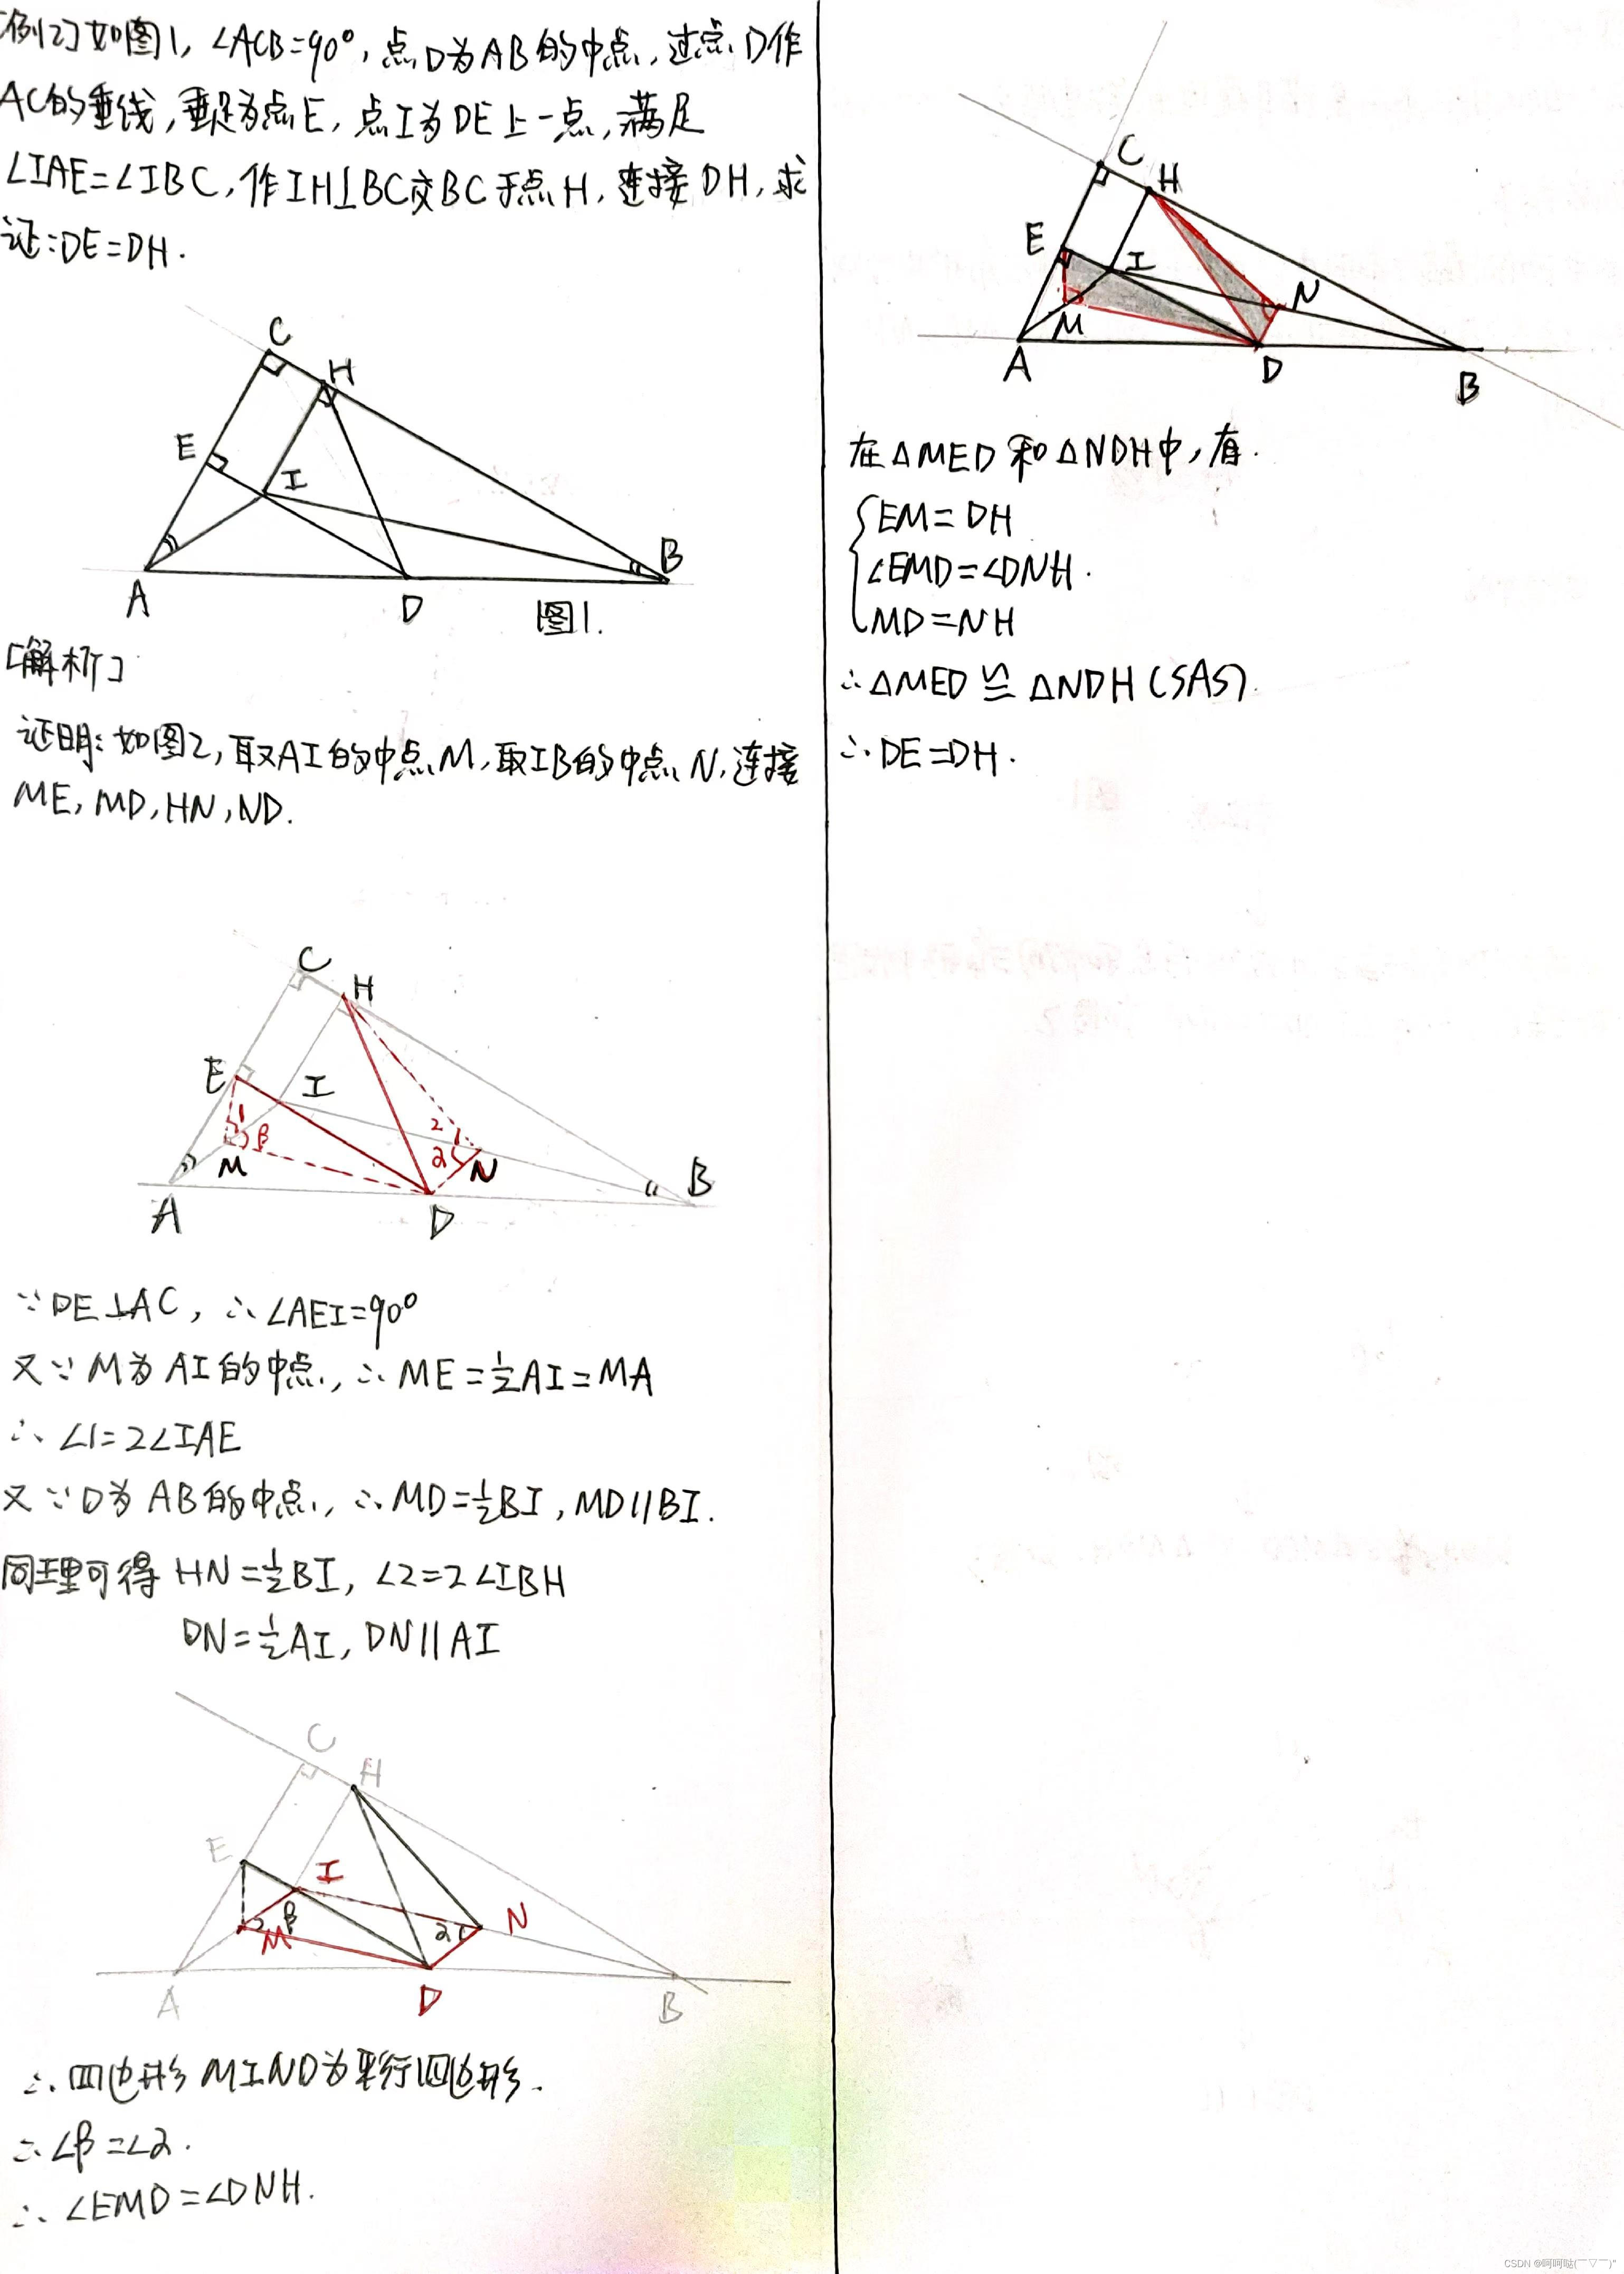 [例2]如图1,∠ACB=90°,点D为AB的中点,过点D作
AC的垂线,垂足为点E,点I为DE上一点,满足
∠IAE=∠IBC,作IH⊥BC交BC于点H,连接DH,求
证:DE=DH.
C
H
E
I
A
D
B
图1.
[解析]
证明:如图2,取AI的中点M,取IB的中点N,连接
ME,MD,HN,ND.
C
H
E
I
1
β
2
α
M
N
A
D
B
∵DE⊥AC,∴∠AEI=90°
又∵M为AI的中点,∴ME=½AI=MA
∴∠1=2∠IAE
又∵D为AB的中点,∴MD=½BI,MD∥BI.
同理可得HN=½BI,∠2=2∠IBH
DN=½AI,DN∥AI
C
H
E
I
β
α
M
N
A
D
B
∴四边形MIND为平行四边形.
∴∠β=∠α.
∴∠EMD=∠DNH.
C
H
E
I
N
M
A
D
B
在△MED和△NDH中,有.
EM=DH
∠EMD=∠DNH.
MD=NH
∴△MED≌△NDH(SAS).
∴DE=DH.
CSDN @呵呵哒(￣▽￣)"